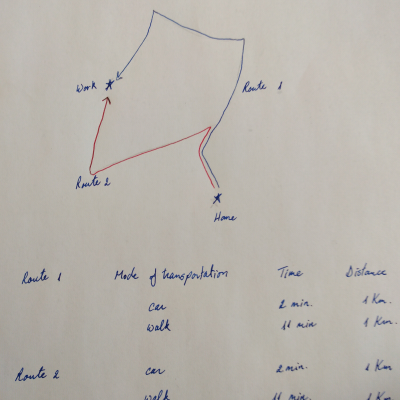 Work
Route 1
Route 2
Home
Route 1 Mode of transportation Time Distance
car 2 min. 1 Km.
walk 11 min 1 Km.
Route 2 car 2 min. 1 Km
walk 11 min. 1 Km